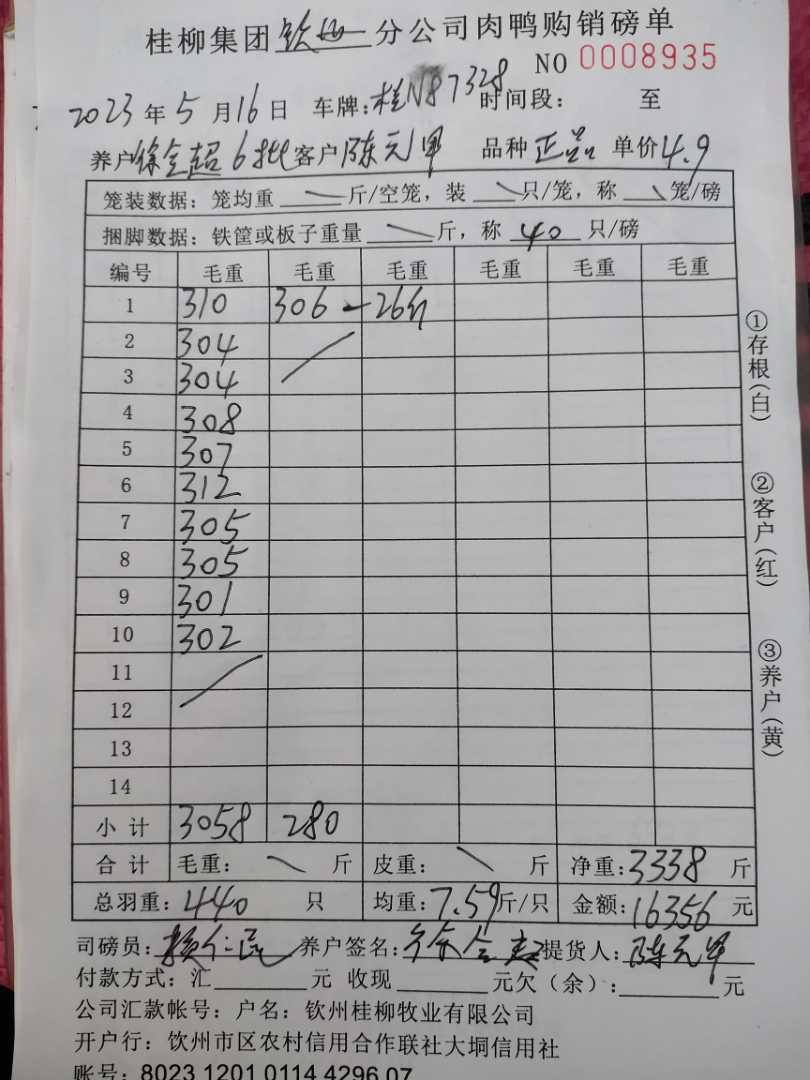 桂柳集团钦州分公司肉鸭购销磅单
NO 0008935
2023年5月16日 车牌:桂N87328 时间段: 至
养户徐全超6批客户陈元甲 品种正品 单价4.9
笼装数据: 笼均重 斤/空笼, 装 只/笼, 称 笼/磅
捆脚数据: 铁筐或板子重量 斤, 称 40 只/磅
编号 毛重 毛重 毛重 毛重 毛重 毛重
1 310 306 -26斤
2 304
3 304
4 308
5 307
6 312
7 305
8 305
9 301
10 302
11
12
13
14
小计 3058 280
合计 毛重: 斤 皮重: 斤 净重:3338 斤
总羽重:440 只 均重:7.59斤/只 金额:16356 元
司磅员: 养户签名:徐全超 提货人:陈元甲
付款方式:汇 元 收现 元欠(余): 元
公司汇款帐号: 户名: 钦州桂柳牧业有限公司
开户行: 钦州市区农村信用合作联社大垌信用社
账号: 8023 1201 0114 4296 07
①存根(白)
②客户(红)
③养户(黄)